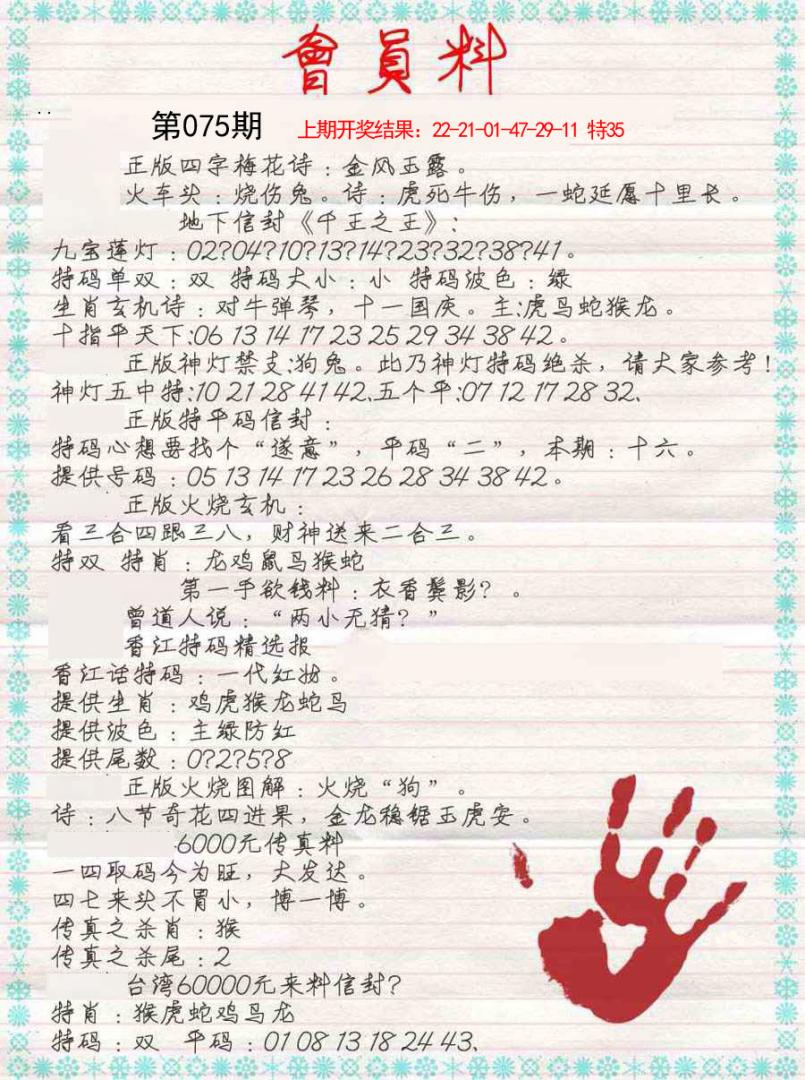 會員料
第075期 上期开奖结果：22-21-01-47-29-11 特35
正版四字梅花诗：金风玉露。
火车头：烧伤兔。诗：虎死牛伤，一蛇延愿十里长。
地下信封《千王之王》：
九宝莲灯：02?04?10?13?14?23?32?38?41。
特码单双：双 特码大小：小 特码波色：绿
生肖玄机诗：对牛弹琴，十一国庆。主:虎马蛇猴龙。
十指平天下:06 13 14 17 23 25 29 34 38 42。
正版神灯禁支:狗兔。此乃神灯特码绝杀，请大家参考！
神灯五中特:10 21 28 41 42、五个平:07 12 17 28 32、
正版特平码信封：
特码心想要找个“遂意”，平码“二”，本期：十六。
提供号码：05 13 14 17 23 26 28 34 38 42。
正版火烧玄机：
看三合四跟三八，财神送来二合三。
特双 特肖：龙鸡鼠马猴蛇
第一手欲钱料：衣香鬓影？。
曾道人说：“两小无猜？”
香江特码精选报
香江话特码：一代红妆。
提供生肖：鸡虎猴龙蛇马
提供波色：主绿防红
提供尾数：0?2?5?8
正版火烧图解：火烧“狗”。
诗：八节奇花四进果，金龙稳锯玉虎安。
6000元传真料
一四取码今为旺，大发达。
四七来头不冒小，博一博。
传真之杀肖：猴
传真之杀尾：2
台湾60000元来料信封？
特肖：猴虎蛇鸡马龙
特码：双 平码：01 08 13 18 24 43、